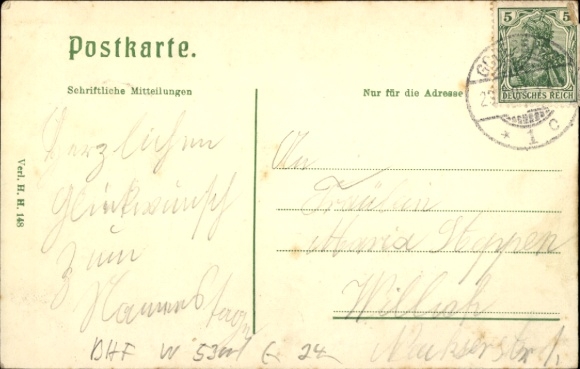 Postkarte.
Schriftliche Mitteilungen
Nur für die Adresse
5 5
DEUTSCHES REICH
* 1 C
Herzlichen
Glückwunsch
zum
Namenstage
Verl. H. H. 148
An
Fräulein
Maria Steppen
Willich
BHF W